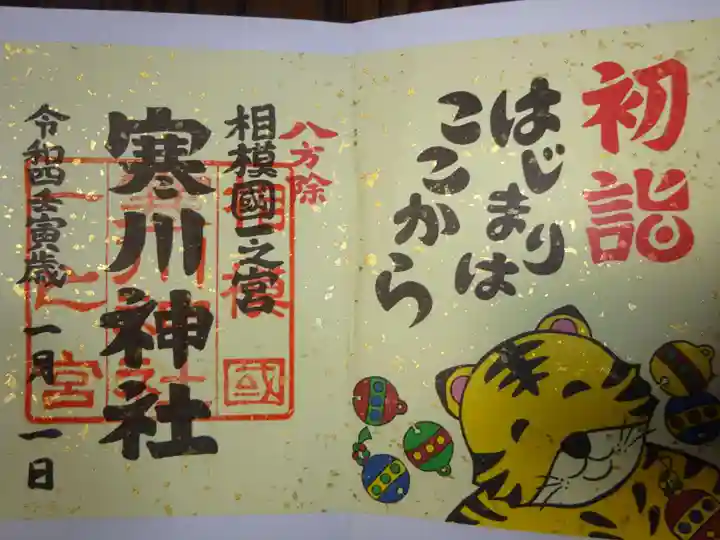 初詣
はじまりは
ここから
八方除
相模國一之宮
寒川神社
令和四壬寅歳 一月 一日
相模國
寒川神社
一之宮